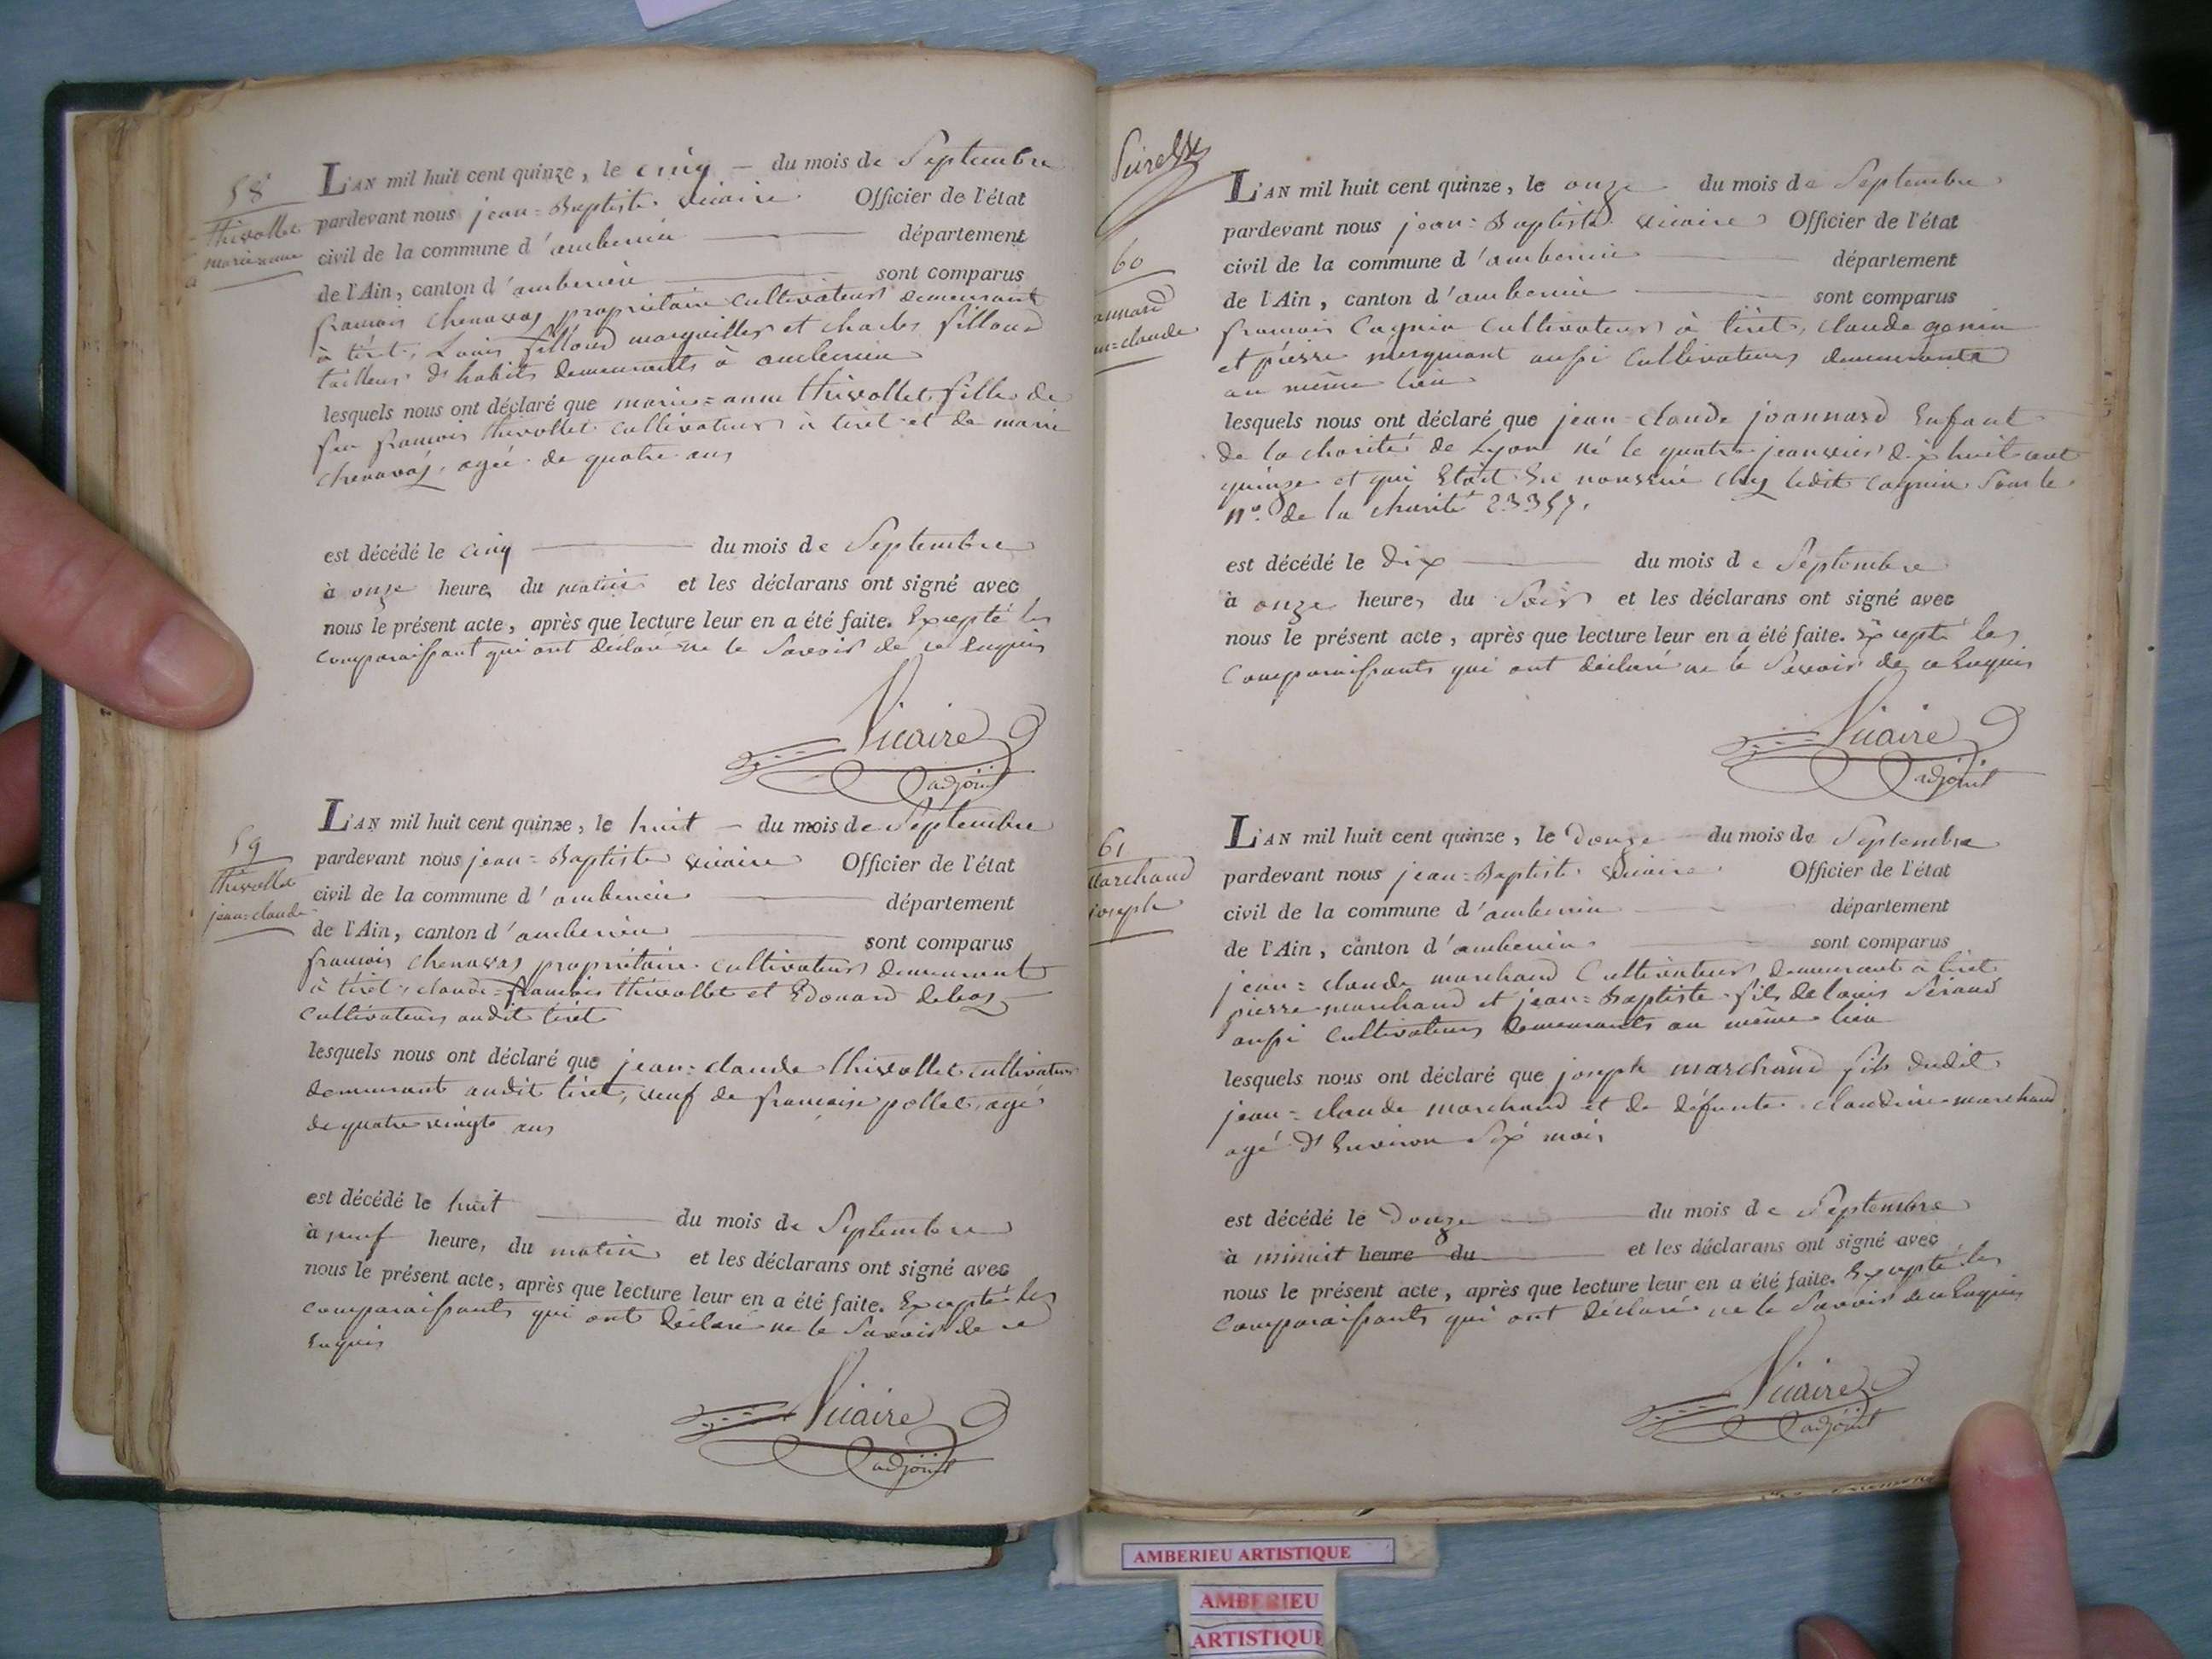 58
thivollet
marie=anne
L'AN mil huit cent quinze, le cinq — du mois de Septembre
pardevant nous jean=Baptiste vicaire Officier de l'état
civil de la commune d'amberieu département
de l'Ain, canton d'amberieu sont comparus
francois chenavas propriétaire cultivateur demeurant
à tiret, Louis filloud marguillier et charles filloud
tailleur d'habits demeurants à amberieu
lesquels nous ont déclaré que marie=anne thivollet fille de
feu francois thivollet cultivateur à tiret et de marie
chenavas, agée de quatre ans
est décédé le cinq du mois de Septembre
à onze heures du matin et les déclarans ont signé avec
nous le présent acte, après que lecture leur en a été faite. Excepté les
comparaissant qui ont déclaré ne le Savoir de ce Enquis
Vicaire
adjoint
59
thivollet
jean=claude
L'AN mil huit cent quinze, le huit — du mois de Septembre
pardevant nous jean=Baptiste vicaire Officier de l'état
civil de la commune d'amberieu département
de l'Ain, canton d'amberieu sont comparus
francois chenavas propriétaire cultivateur demeurant
à tiret, claude=francois thivollet et Edouard
cultivateurs audit tiret
lesquels nous ont déclaré que jean=claude thivollet cultivateur
demeurant audit tiret, veuf de francoise pollet, agé
de quatre vingts ans
est décédé le huit du mois de Septembre
à neuf heures du matin et les déclarans ont signé avec
nous le présent acte, après que lecture leur en a été faite. Excepté les
comparaissants qui ont déclaré ne le Savoir de ce
Enquis
Vicaire
adjoint
60
L'AN mil huit cent quinze, le onze du mois de Septembre
pardevant nous jean=Baptiste vicaire Officier de l'état
civil de la commune d'amberieu département
de l'Ain, canton d'amberieu sont comparus
francois Cagnin cultivateur à tiret, claude genin
et pierre aussi cultivateurs demeurants
au même lieu
lesquels nous ont déclaré que jean=claude joannard Enfant
de la charité de Lyon né le quatre jeanvier dix huit cent
quinze et qui Etoit En nourrice chez ledit Cagnin Sous le
n.º de la charité 23357.
est décédé le dix du mois de Septembre
à onze heures du Soir et les déclarans ont signé avec
nous le présent acte, après que lecture leur en a été faite. Excepté les
Comparaissants qui ont déclaré ne le Savoir de ce Enquis
Vicaire
adjoint
61
marchand
joseph
L'AN mil huit cent quinze, le douze du mois de Septembre
pardevant nous jean=Baptiste vicaire Officier de l'état
civil de la commune d'amberieu département
de l'Ain, canton d'amberieu sont comparus
jean=claude marchand Cultivateur demeurant à tiret
pierre marchand et jean=Baptiste fils de louis
aussi cultivateurs demeurants au même lieu
lesquels nous ont déclaré que joseph marchand fils dudit
jean=claude marchand et de défunte claudine marchand
agé d'Environ Six mois
est décédé le douze du mois de Septembre
à minuit heure du et les déclarans ont signé avec
nous le présent acte, après que lecture leur en a été faite. Excepté les
Comparaissants qui ont déclaré ne le Savoir de ce Enquis
Vicaire
adjoint
AMBERIEU ARTISTIQUE
AMBERIEU
ARTISTIQUE